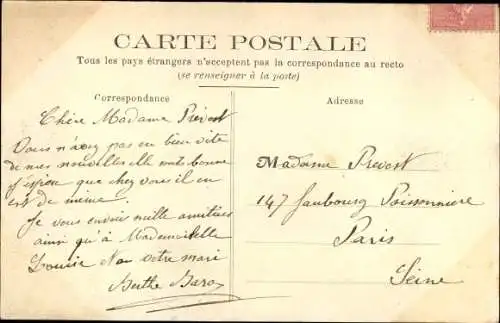 CARTE POSTALE
Tous les pays étrangers n'acceptent pas la correspondance au recto
(se renseigner à la poste)
Correspondance
Adresse
Chère Madame Prévost
Vous n'avez pas eu bien vite
de mes nouvelles elle sont bonne
j'espère que chez vous il en
est de même.
Je vous envoie mille amitiées
ainsi qu'à Mademoiselle
Louise votre mari
Berthe
Madame Prevost
147 Faubourg Poissonnière
Paris
Seine